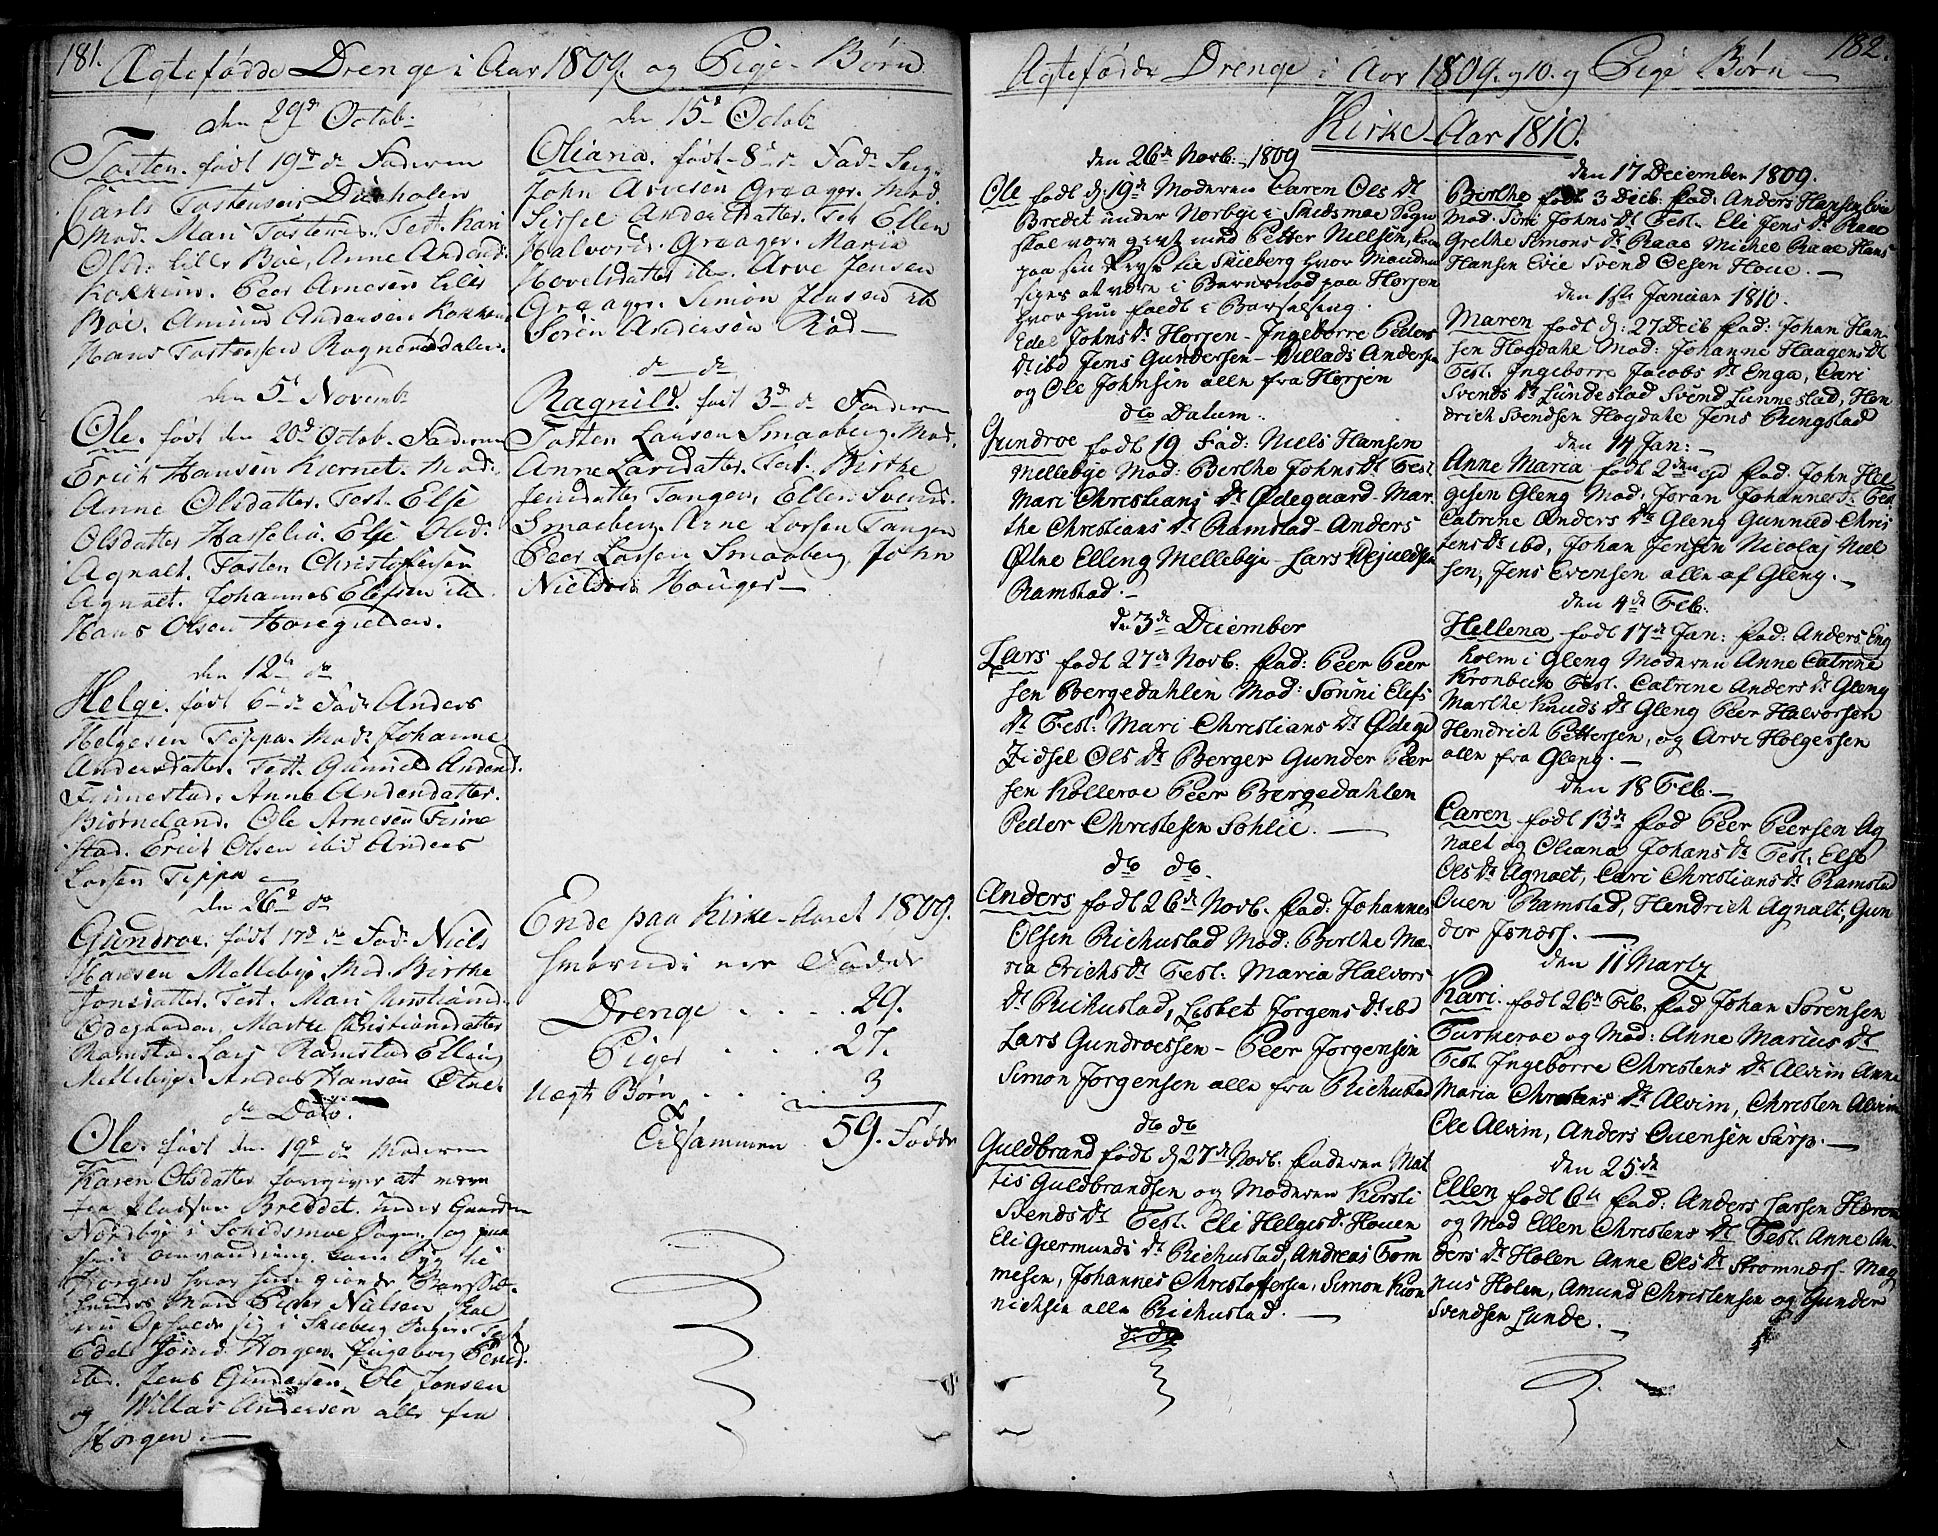 181.
Ægtefødde Drenge i Aar 1809. og Pige-Børn
den 29de Octob:
Tosten. født 19de dn Faderen
Carls Tostensen
Mod. Mari Tostens. Test. Kari
Olsd: Lille Böe, Anne Andersd:
Kokkim. Peer Arnesen Lille
Böe. Amund Andersen Kokkim
Hans Tostensen Rognerødalen.
den 5te Novemb
Ole. født den 20de Octob. Faderen
Erich Hansen Kiernet. Mod:
Anne Olsdatter. Test. Else
Olsdatter Hasselia. Else Olsd:
Agnalt. Tosten Christofersen
Agnalt. Johannes Elefsen ibd.
Hans Olsen Haregrelden.
den 12te dn
Helge. født 6te dn Fad: Anders
Helgesen Tippa. Mod: Johanne
Andersdatter. Test. Gunild Andersd.
Finnestad. Anne Andersdatter.
Biørneland. Ole Arnesen Finne
stad. Erich Olsen ibid Anders
Larsen Tippa
den 26de dn
Gundroe. født 17de dn Fad: Niels
Hansen Mellebye Mod. Birthe
Jonsdatter. Test. Mari Christiansd.
Ødegaarden, Marthe Christiansdatter
Ramstad. Lars Ramstad Elling
Mellebye. Anders Hansen Ølne.
do Dato.
Ole. født den 19de dn Moderen
Karen Olsdatter foregiver at være
fra Pladsen Breddet under Gaarden
Nordbye i Schidsmoe Sogn, og paa
sin omvandring kom syg til
Horgen hvor hun giorde Barsel.
hendes Mand Peder Nielsen skal
nu Opholde sig i Skieberg Sogn. Test
Edel Jönsd. Horgen. Ingeborg Persd.
ibd. Jens Gundersen. Ole Jonsen
og Willas Andersen alle fra
Horgen.
den 15de Octob:
Oliana. født 8de dn Fad:
John Arvesen Graager. Mod.
Sissel Andersdatter. Test Ellen
Halvorsd. Graager. Maria
Hovelsdatter ibd. Arve Jensen
Graager. Simon Jensen ibd
Søren Andersen Röd
dn dn
Ragnild. født 3de dn Faderen
Tosten Larsen Smaaberg. Mod.
Anne Larsdatter. Test. Birthe
Jensdatter Tangen, Ellen Svends.
Smaaberg. Arne Larsen Tangen
Peer Larsen Smaaberg, John
Nielsen Houger
Ende paa Kirke-Aaret 1809.
hvorudi ere Fødde
Drenge . . . . 29.
Piger . . . . 27.
Uægt Børn . . . . 3
Tilsammen 59. Fødde
182.
Ægtefødde Drenge i Aar 1809. og 10. og Pige Børn
Kirke-Aar 1810.
den 26de Novb. 1809
Ole født d. 19de Moderen Caren Ols Dt
Bredet under Norbye i Skidsmoe Sogn
skal være givt med Petter Nielsen, kom
paa sin Reyse til Skieberg hvor Manden
siges at være i Barnsnød paa Horjen
hvor hun fœdt i Barselseng.
Edel Johns Dt Horjen - Ingeborre Peders
Dt ibd Jens Gundersen - Villads Andersen
og Ole Johnsen alle fra Horjen
dto Datum.
Gundroe født 19 Fad: Niels Hansen
Mellebye Mod: Berthe Johns Dt Test
Mari Christians Dt Ødegaard - Mar-
the Christians Dt Ramstad - Anders
Ølne Elling Mellebye - Lars Mejuldsen
Ramstad.
den 3de December
Lars født 27de Novb: Fad: Peer Peer
sen Bergedahlen Mod: Sönni Elefs
Dt Test: Mari Christians Dt Ødegd
Zidsel Ols Dt Berger Gunder Peer
sen Kölleroe Peer Bergedahlen
Peder Christesen Sohlie.
dto dto.
Anders født 26de Novb. Fad: Johannes
Olsen Richustad Mod: Berthe Ma-
ria Erichs Dt Test: Maria Halvors
Dt Richustad, Lisbet Jorgens Dt ibd
Lars Gundroessen - Peer Jorgensen
Simon Jorgensen alle fra Richustad
dto dto
Guldbrand født d 27de Novb. Faderen Mat
tis Guldbrandsen og Moderen Kirsti
Svends Dt Test. Eli Helges Dt Houen
Eli Giermunds Dt Richustad, Andreas Tom
mesen, Johannes Christoffersen, Simon Kion
nichsen alle Richustad.
den 17 December 1809.
Berthe født 3 Decb: Fad: Anders Hansen Evie
Mod: Siri Johns Dt Test. Eli Jens Dt Raae
Grethe Simons Dt Raae Michel Raae Hans
Hansen Evie Svend Olesen Houe.
den 1ste Januar 1810.
Maren født d: 27 Decb Fad: Johan Han
sen Hogdahl Mod: Johanne Haagens Dt
Test. Ingeborre Jacobs Dt Enga, Cari
Svends Dt Lundestad Svend Lunnestad, Hen
drich Svendsen Hogdahl Jens Ringstad
den 14 Jan:
Anne Maria født 2den ejd Fad: John Hel
gesen Gleng Mod: Joran Johannes Dt Test
Catrine Anders Dtr Gleng Gunnild Chris
tens Dt ibd, Johan Jensen Nicolaj Niel
sen, Jens Evensen alle af Gleng.
den 4de Feb.
Hellena født 17de Jan: Fad: Anders Eng
holm i Gleng Moderen Anne Catrine
Kronbech Test. Catrine Anders Dt Gleng
Marthe Knuds Dt Gleng Peer Halvorsen
Hendrich Pettersen, og Arve Holgersen
alle fra Gleng.
den 18 Feb.
Caren født 13de Fad Peer Peersen Ag
nalt og Oliana Johans Dt Test. Else
Ols Dt Agnalt, Cari Christians Dt Ramstad
Ouen Ramstad, Hendrich Agnalt, Gun
der
den 11 Martz
Kari. født 26de Feb. Fad Johan Sörensen
Turkeroe og Mod: Anne Marius Dt
Test Ingeborre Christens Dt Alvim Anne
Maria Christens Dt Alvim, Christen Alvim
Ole Alvim, Anders Ouensen Sarp.
den 25de
Ellen født 6te Fad: Anders Larsen Hærem
og Mod Ellen Christens Dt Test. Anne An-
ders Dt Holen Anne Ols Dt Strømnæss Mag
nus Holen, Amund Christensen og Gunder
Svendsen Lunde.